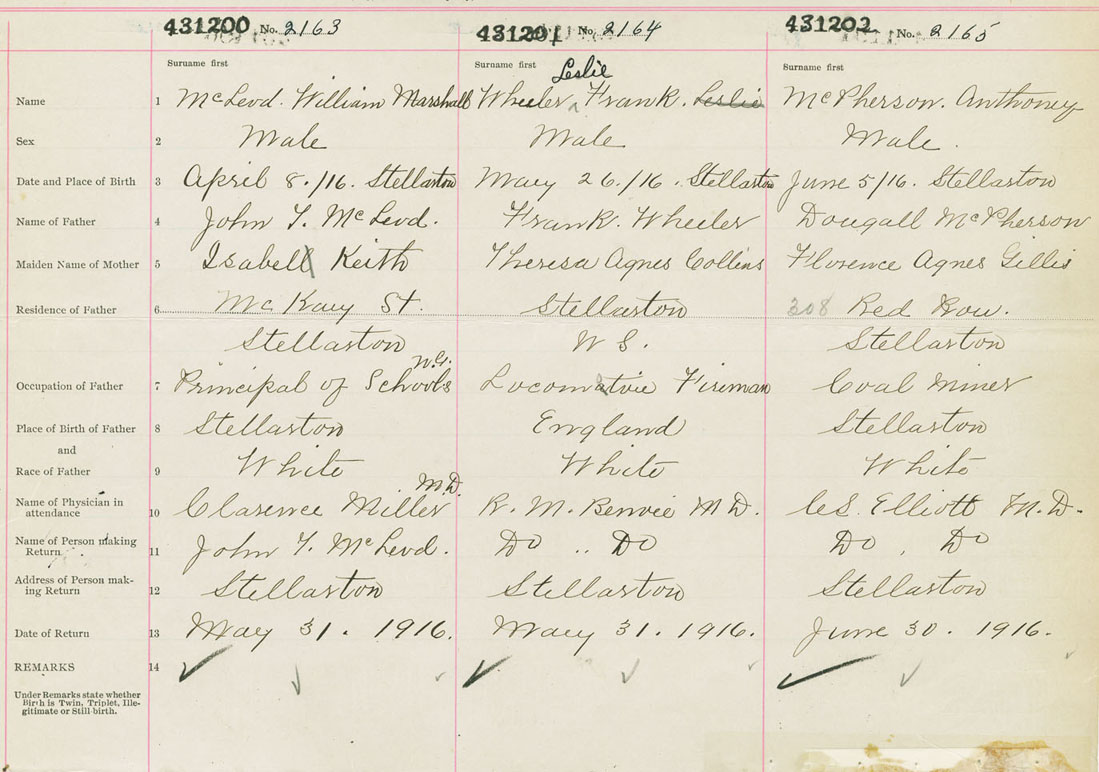 431200 No. 2163 431201 No. 2164 431202 No. 2165
Surname first Surname first Surname first
Leslie
Name 1 McLeod. William Marshall Wheeler ^ Frank. Leslie McPherson. Anthoney
Sex 2 Male Male Male.
Date and Place of Birth 3 April 8./16. Stellarton May 26./16. Stellarton June 5/16. Stellarton
Name of Father 4 John T. McLeod. Frank. Wheeler Dougall McPherson
Maiden Name of Mother 5 Isabell Keith Theresa Agnes Collins Florence Agnes Gillis
Residence of Father 6 McKay St. Stellarton 308 Red Row.
Stellarton N S. Stellarton
N.S.
Occupation of Father 7 Principal of Schools Locomotive Fireman Coal Miner
Place of Birth of Father 8 Stellarton England Stellarton
and
Race of Father 9 White White White
M.D.
Name of Physician in
attendance 10 Clarence Miller R. M. Benvie M D. C.S. Elliott M.D.
Name of Person making
Return 11 John T. McLeod. Do .. Do Do . Do
Address of Person mak-
ing Return 12 Stellarton Stellarton Stellarton
Date of Return 13 May 31. 1916. May 31. 1916. June 30. 1916.
REMARKS 14
Under Remarks state whether
Birth is Twin, Triplet, Ille-
gitimate or Still-birth.